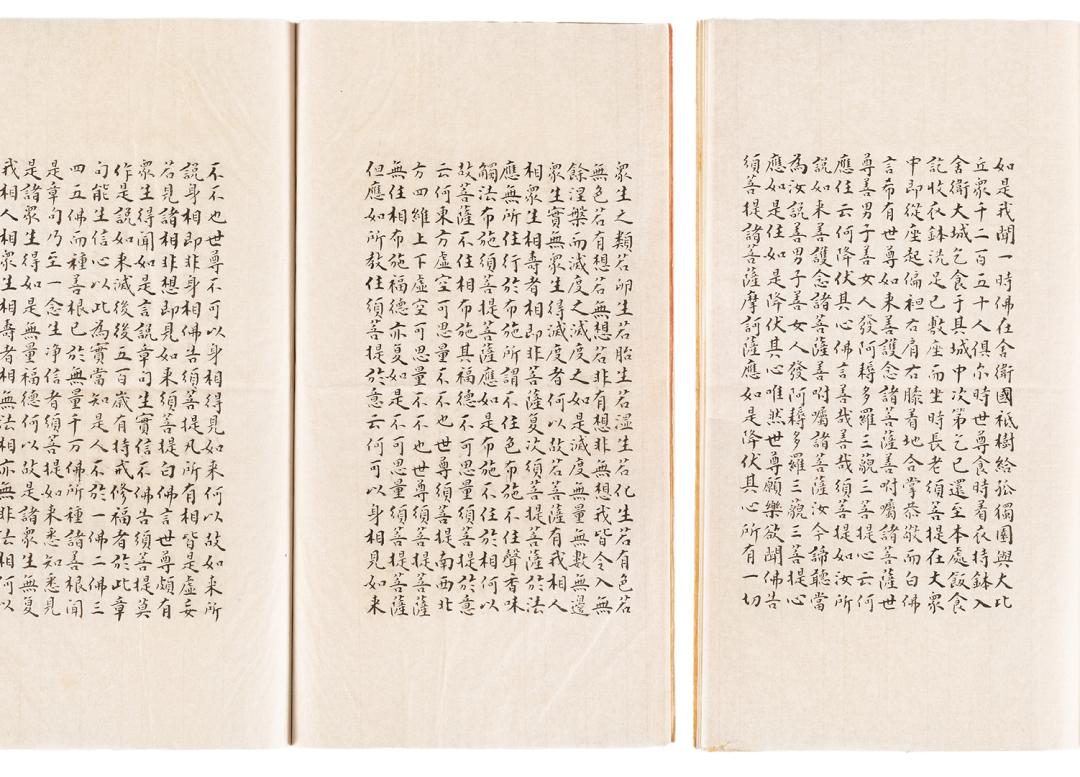 如是我聞一時佛在舍衛國祇樹給孤獨園與大比
丘眾千二百五十人俱尒時世尊食時着衣持鉢入
舍衛大城乞食于其城中次第乞已還至本處飯食
訖收衣鉢洗足已敷座而坐時長老須菩提在大眾
中即從座起偏袒右肩右膝着地合掌恭敬而白佛
言希有世尊如来善護念諸菩薩善咐囑諸菩薩世
尊善男子善女人發阿耨多羅三藐三菩提心云何
應住云何降伏其心佛言善哉善哉須菩提如汝所
說如来善護念諸菩薩善咐囑諸菩薩汝今諦聽當
為汝說善男子善女人發阿耨多羅三藐三菩提心
應如是住如是降伏其心唯然世尊願樂欲聞佛告
須菩提諸菩薩摩訶薩應如是降伏其心所有一切
眾生之類若卵生若胎生若濕生若化生若有色若
無色若有想若無想若非有想非無想我皆令入無
餘涅槃而滅度之滅度之如是滅度無量無數無邊
眾生實無眾生得滅度者何以故若菩薩有我相人
相眾生相壽者相即非菩薩復次須菩提菩薩於法
應無所住行於布施所謂不住色布施不住聲香味
觸法布施須菩提菩薩應如是布施不住於相何以
故菩薩不住相布施其福德不可思量須菩提於意
云何東方虛空可思量不不也世尊須菩提南西北
方四維上下虛空可思量不不也世尊須菩提菩薩
無住相布施福德亦復如是不可思量須菩提菩薩
但應如所教住須菩提於意云何可以身相見如来
不不也世尊不可以身相得見如来何以故如来所
說身相即非身相佛告須菩提凡所有相皆是虛妄
若見諸相非想即見如来須菩提白佛言世尊頗有
眾生得聞如是言說章句生實信不佛告須菩提莫
作是說如来滅後後五百歲有持戒修福者於此章
句能生信心以此為實當知是人不於一佛二佛三
四五佛而種善根已於無量千万佛所種諸善根聞
是章句乃至一念生淨信者須菩提如来悉知悉見
是諸眾生得如是無量福德何以故是諸眾生無復
我相人相眾生相壽者相無法相亦無非法相何以